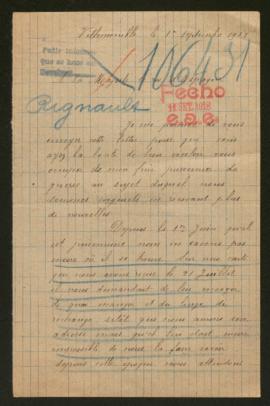 Villemomble le 1er Septembre 1918
Pedir informes
106431
Fecho
Rignault
E.D.E.
Je me permets de vous
envoyer cette lettre pour que vous
ayez la bonté de bien vouloir vous
occuper de mon fils prisonnier de
guerre au sujet duquel nous
sommes inquiets ne recevant plus
de nouvelles
Depuis le 1er Juin qu'il
est prisonnier nous ne savons pas
encore où il se trouve. Sur une carte
que nous avons reçue le 21 Juillet
il nous demandait de lui envoyer
de quoi manger et du linge de
rechange sitôt que nous aurons son
adresse mais qu'il lui était encore
impossible de nous la faire savoir
depuis cette époque nous attendons